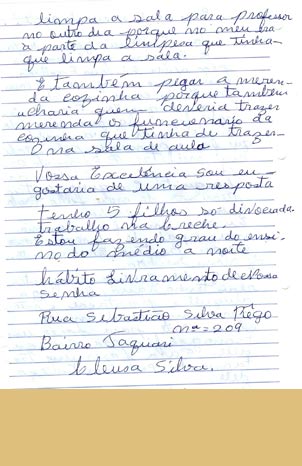 limpa a sala para professor
no outro dia porque no meu era
a parte da limpeca que tinha
que limpa a sala.
E também pegar a meren-
da cozinha porque também
acharia quem deveria trazer
merenda os funcionario da
cozinha que tinha de trazer
na sala de aula
Vossa Excelência sou eu
gostaria de uma resposta
Tenho 5 filhos so divociada
trabalho na creche.
Estou fazendo grau do ensi-
no do médio a noite
hábito Livramento de Nossa
Senhora
Rua Sebastião Silva Prego
nº=209
Bairro Taquari
Cleusa Silva.